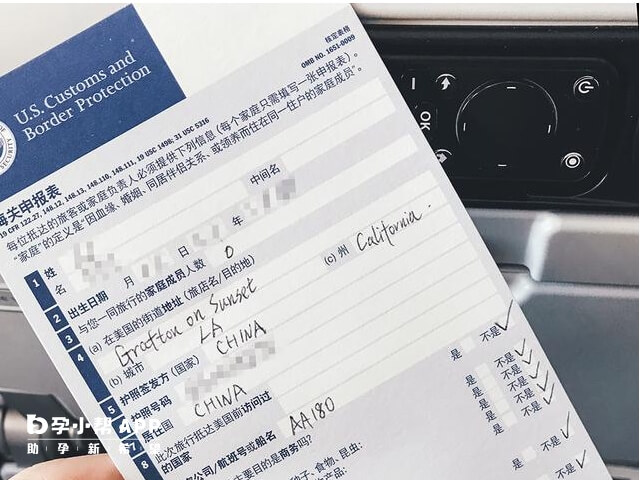 U.S. Customs and
Border Protection
核定表格
OMB NO. 1651-0009
海关申报表
19 CFR 122.27, 148.12, 148.13, 148.110, 148.111, 19 USC 1498; 31 USC 5316
每位抵达的旅客或家庭负责人必须提供下列信息(每个家庭只需填写一张申报表)。
"家庭"的定义是"因血缘、婚姻、同居伴侣关系、或领养而住在同一住户的家庭成员"。
1 姓
名 中间名
2 出生日期 月 日 年
3 与您一同旅行的家庭成员人数 0
4 (a) 在美国的街道地址 (旅店名/目的地)
Grafton on Sunset
(b) 城市 LA (c) 州 California.
5 护照签发方 (国家) CHINA
护照号码
居住国 CHINA
8 此次旅行抵达美国前访问过
的国家
公司/航班号或船名 AA180
主要目的是商务吗? 是 不是
种子、食物、昆虫: 是 不是
是 不是
是 不是
是 不是
是 不是
OK
孕小帮 APP
助孕新希望